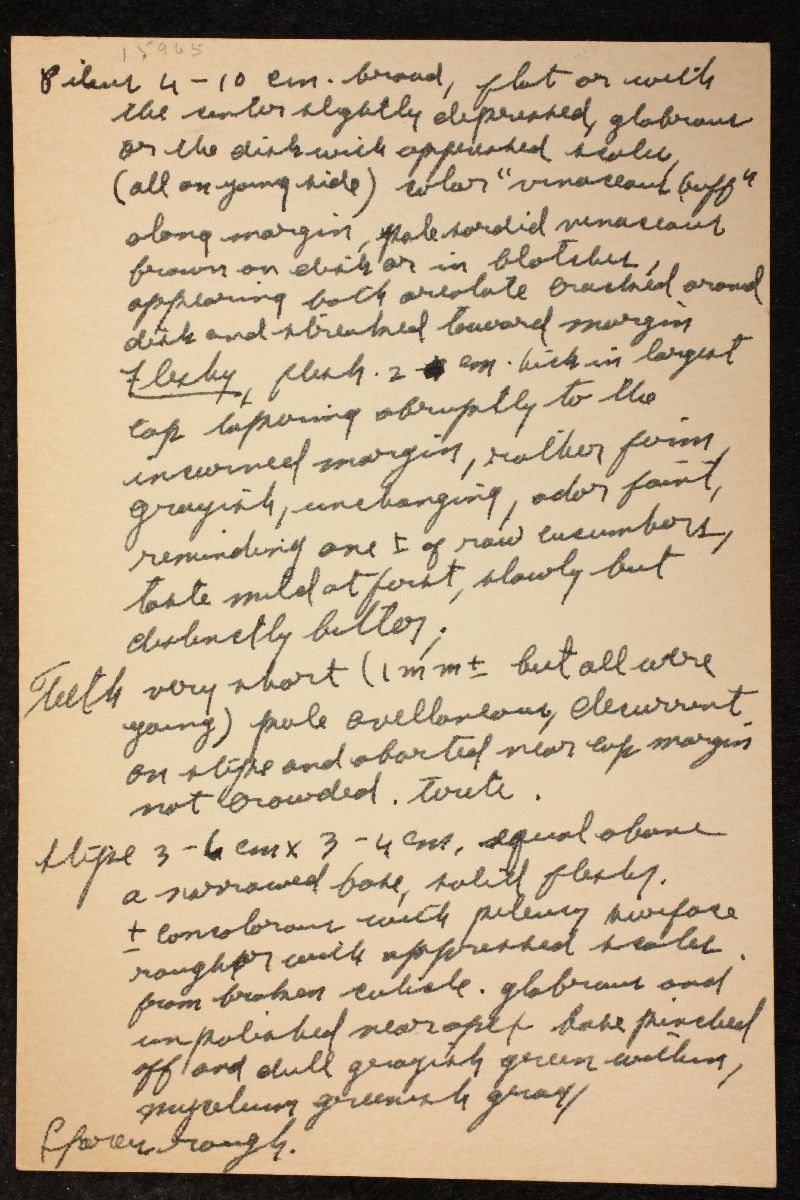 15965
Pileus 4-10 cm. broad, flat or with
the center slightly depressed, glabrous
or the disk with appressed scales,
(all on young side) color "vinaceous buff"
along margin, pale sordid vinaceous
brown on disk or in blotches,
appearing both areolate cracked around
disk and streaked toward margin
Fleshy, flesh . 2 cm. thick in largest
cap tapering abruptly to the
incurved margin, rather firm,
grayish, unchanging, odor faint,
reminding one ± of raw cucumbers,
taste mild at first, slowly but
distinctly bitter,
Teeth very short (1 mm ± but all were
young) pale avellaneous, decurrent
on stipe and aborted near cap margin
not crowded. terete.
stipe 3-6 cm x 3-4 cm, equal above
a narrowed base, solid fleshy.
± concolorous with pileus surface
rough with appressed scales
from broken cuticle. glabrous and
unpolished near apex base pinched
off and dull grayish green within,
mycelium greenish gray/
Spores rough.